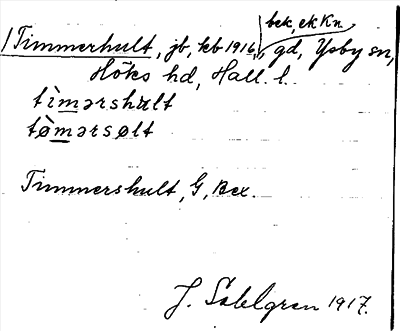 bek, ek Kn
/Timmerhult, jb, kb 1916, gd, Ysby sn,
Höks hd, Hall. l.
tìmərshult
tø̀mərsølt
Timmershult, G, Bex.
J. Sahlgren 1917.